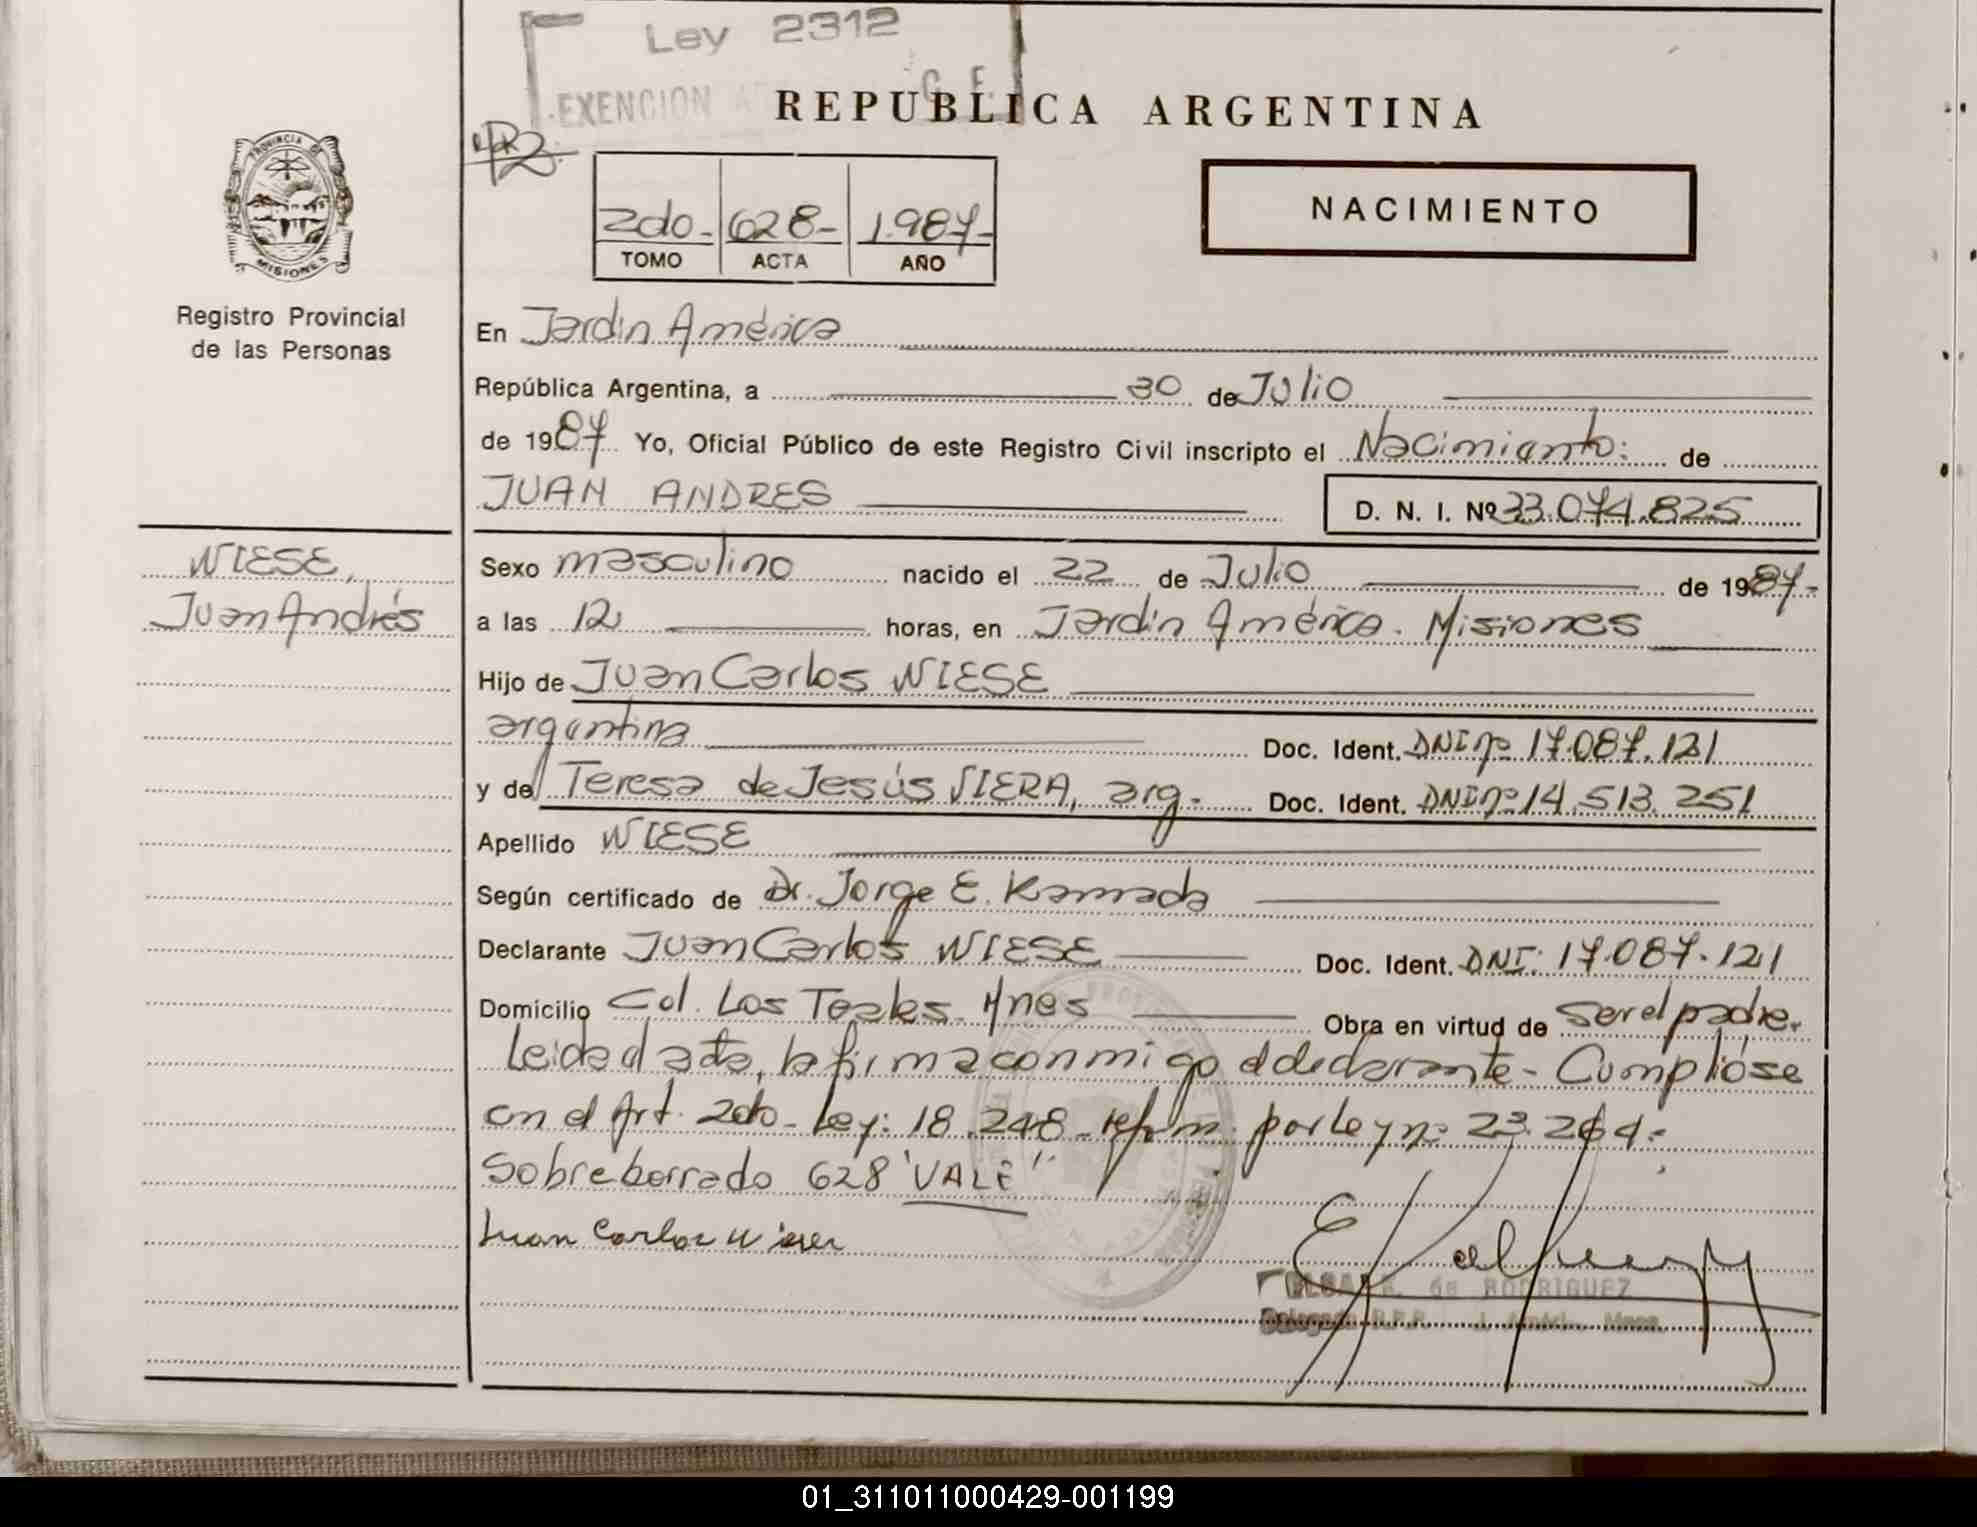 Ley 2312
EXENCION
REPUBLICA ARGENTINA
PROVINCIA DE
MISIONES
2do- 628- 1.987-
TOMO ACTA AÑO
NACIMIENTO
Registro Provincial
de las Personas
En Jardín América
República Argentina, a 30 de Julio
de 1987 Yo, Oficial Público de este Registro Civil inscripto el Nacimiento: de
JUAN ANDRES D. N. I. Nº 33.074.825
WIESE,
Juan Andrés
Sexo masculino nacido el 22 de Julio de 1987-
a las 12 horas, en Jardín América. Misiones
Hijo de Juan Carlos WIESE
argentina Doc. Ident. DNI nº 17.087.121
y de Teresa de Jesús VIERA, arg. Doc. Ident. DNI nº 14.513.251
Apellido WIESE
Según certificado de Dr. Jorge E. Kamada
Declarante Juan Carlos WIESE Doc. Ident. DNI: 17.087.121
Domicilio Col. Los Teales Mnes Obra en virtud de ser el padre.
Leida el acta, la firma conmigo el declarante - Cumplióse
con el Art. 2do - Ley: 18.248 - reform. por ley nº 23.264.-
Sobreborrado 628 "VALE"
Juan Carlos Wiese
de RODRIGUEZ
Delegada R.P.P.
01_311011000429-001199